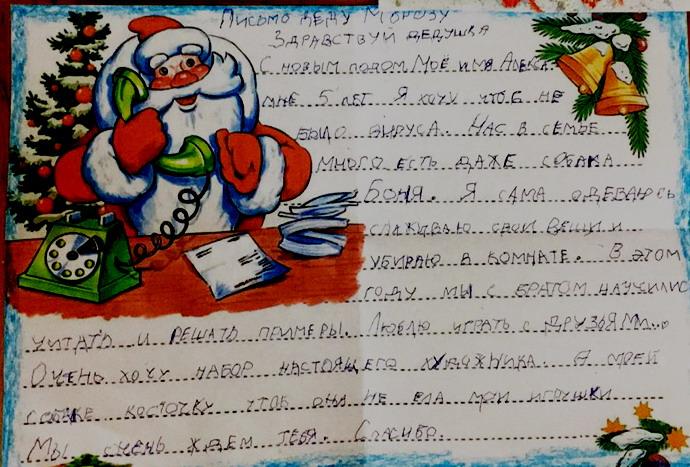 Письмо Деду Морозу
Здравствуй дедушка
С новым годом Моё имя Алекса
мне 5 лет Я хочу чтоб не
было вируса Нас в семье
много есть даже собака
Боня. Я сама одеваюсь
слаживаю свои вещи и
убираю в комнате. В этом
году мы с братом научились
читать и решать примеры. Люблю играть с друзьями...
Очень хочу набор настоящего художника. А моей
собаке косточку чтоб она не ела мои игрушки
Мы очень ждем тебя. Спасибо.